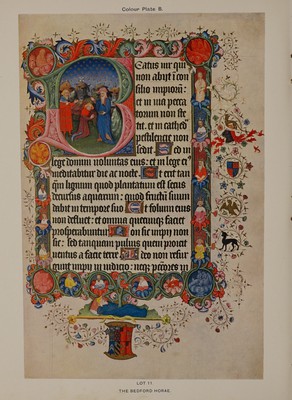 Colour Plate B.
Beatus uir qui
non abijt i con
silio impiorum:
et in uia pecca
torum non ste
tit. et in cathed
pestilencie non
sedit. Sed in
lege domini uoluntas eius: et in lege ei
meditabitur die ac nocte. Et erit tan
quam lignum quod plantatum est secus
decursus aquarum: quod fructum suum
dabit in tempore suo. Et folium eius
non defluet: et omnia quecumq; faciet
prosperabuntur. Non sic impij non
sic: sed tanquam puluis quem proicit
uentus a facie terre. Ideo non resur
gunt impij in iudicio: neq; peccatores in
LOT 11
THE BEDFORD HORAE